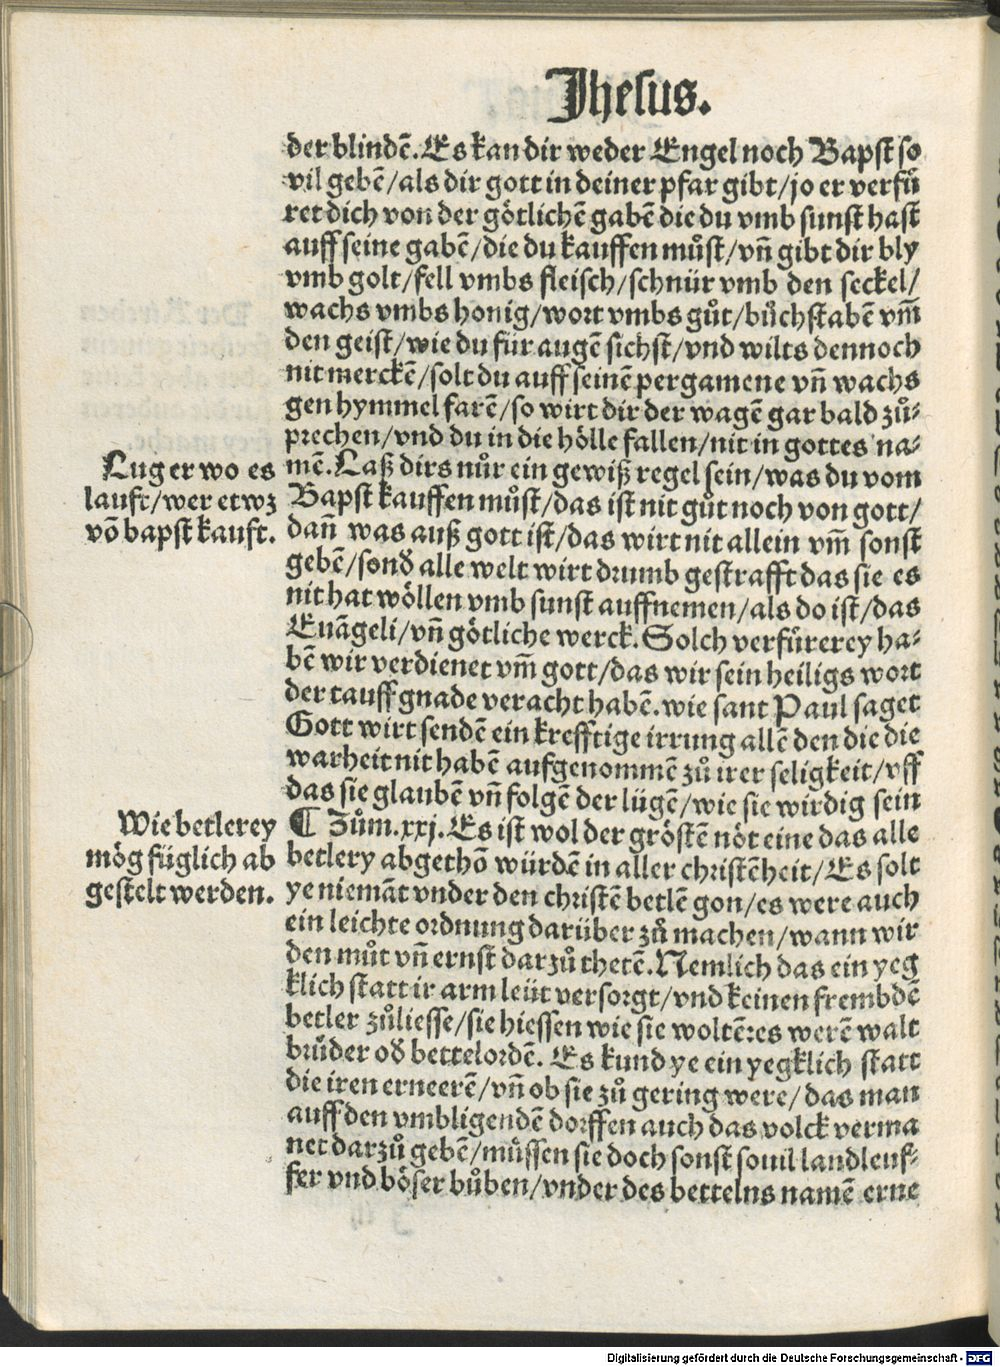 Jhesus.
der blindẽ. Es kan dir weder Engel noch Bapst so
vil gebẽ/als dir gott in deiner pfar gibt/jo er verfuͤ
ret dich von der goͤtlichẽ gabẽ die du vmb sunst hast
auff seine gabẽ/die du kauffen muͦst/vñ gibt dir bly
vmb golt/fell vmbs fleisch/schnuͤr vmb den seckel/
wachs vmbs honig/wort vmbs guͦt/buͦchstabẽ vm̃
den geist/wie du fuͤr augẽ sichst/vnd wilts dennoch
nit merckẽ/solt du auff seinẽ pergamene vñ wachs
gen hymmel farẽ/so wirt dir der wagẽ gar bald zuͦ⸗
prechen/vnd du in die hoͤlle fallen/nit in gottes na⸗
Lug er wo es
lauft/wer etwz
võ bapst kauft.
mẽ. Laß dirs nuͦr ein gewiß regel sein/was du vom
Bapst kauffen muͦst/das ist nit guͦt noch von gott/
dañ was auß gott ist/das wirt nit allein vm̃ sonst
gebẽ/sond̕ alle welt wirt drumb gestrafft das sie es
nit hat woͤllen vmb sunst auffnemen/als do ist/das
Euãgeli/vñ goͤtliche werck. Solch verfuͤrerey ha⸗
bẽ wir verdienet vm̃ gott/das wir sein heiligs wort
der tauff gnade veracht habẽ. wie sant Paul saget
Gott wirt sendẽ ein krefftige irrung allẽ den die die
warheit nit habẽ aufgenommẽ zuͦ irer seligkeit/vff
das sie glaubẽ vñ folgẽ der luͤgẽ/wie sie wirdig sein
Wie betlerey
moͤg fuͤglich ab
gestelt werden.
¶ Zuͦm. xxj. Es ist wol der groͤstẽ noͤt eine das alle
betlery abgethõ wuͤrdẽ in aller christẽheit/Es solt
ye niemãt vnder den christẽ betlẽ gon/es were auch
ein leichte ordnung daruͤber zuͦ machen/wann wir
den muͦt vñ ernst darzuͦ thetẽ. Nemlich das ein yeg
klich statt ir arm leuͤt versorgt/vnd keinen frembdẽ
betler zuͦliesse/sie hiessen wie sie woltẽ: es werẽ walt
bruͤder od̕ bettelordẽ. Es kund ye ein yegklich statt
die iren erneerẽ/vñ ob sie zuͦ gering were/das man
auff den vmbligendẽ dorffen auch das volck verma
net darzuͦ gebẽ/muͤssen sie doch sonst souil landleuf⸗
fer vnd boͤser buͦben/vnder des bettelns namẽ erne
Digitalisierung gefördert durch die Deutsche Forschungsgemeinschaft - DFG